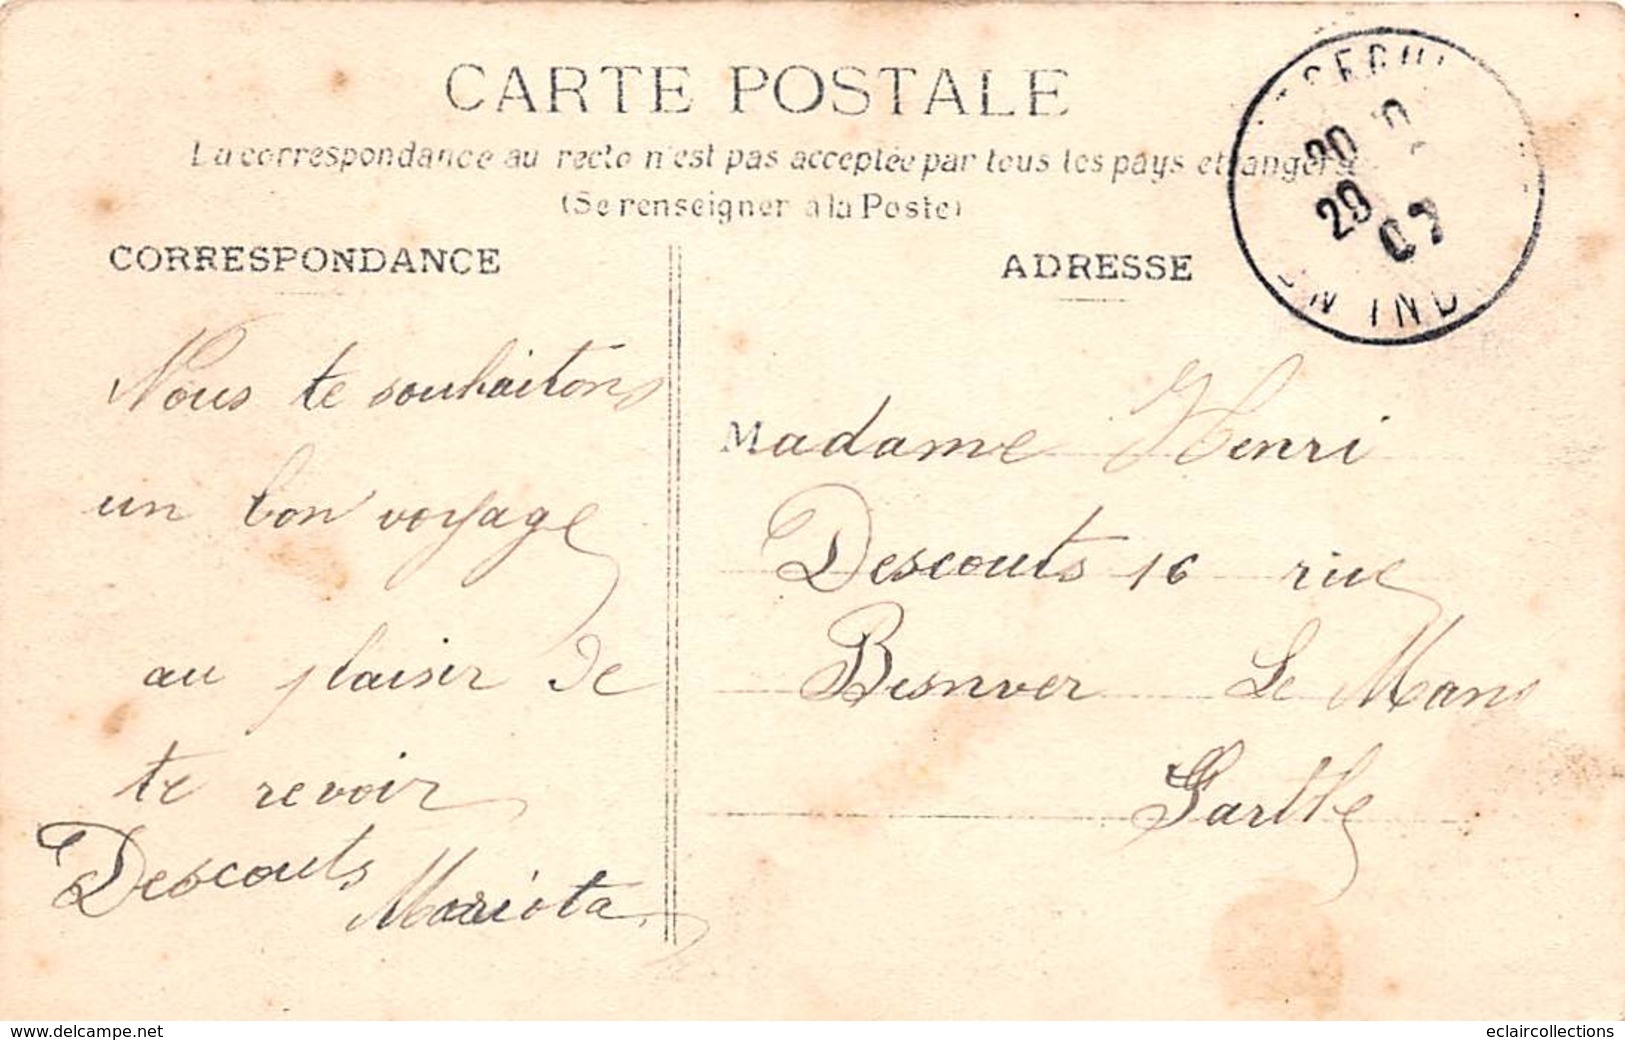 CARTE POSTALE
La correspondance au recto n'est pas acceptée par tous les pays etrangers
(Se renseigner à la Poste)
CORRESPONDANCE
Nous te souhaitons
un bon voyage
au plaisir de
te revoir
Descouts
Mariota
ADRESSE
Madame Henri
Descouts 16 rue
Besnver Le Mans
Sarthe
20
29
07
IND
www.delcampe.net
eclaircollections